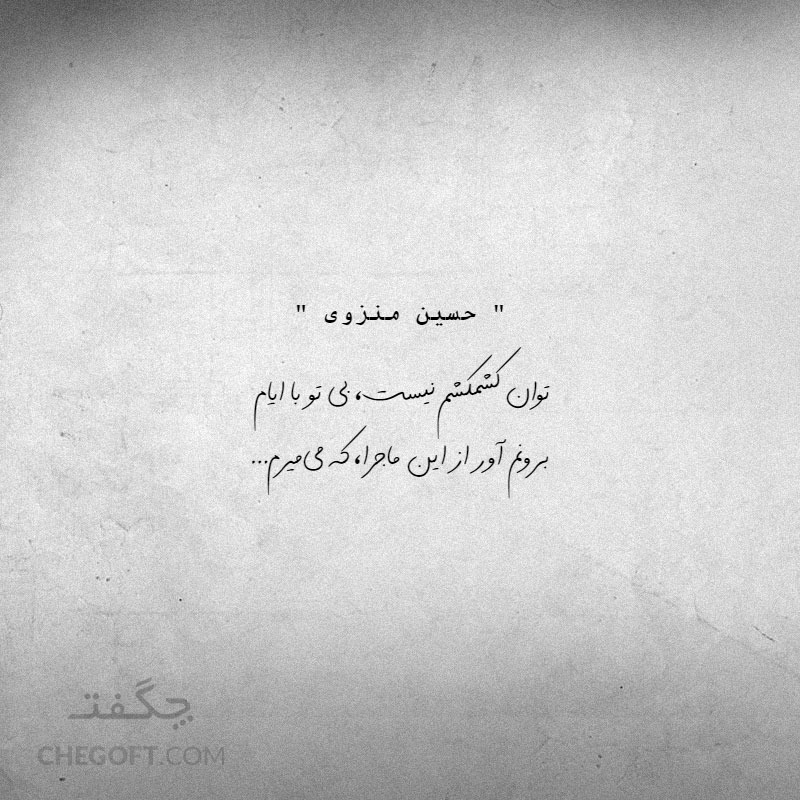 " حسین منزوی "
توان کشمکشم نیست، بی تو با ایام
برونم آور از این ماجرا، که می‌میرم...
چگفت
CHEGOFT.COM